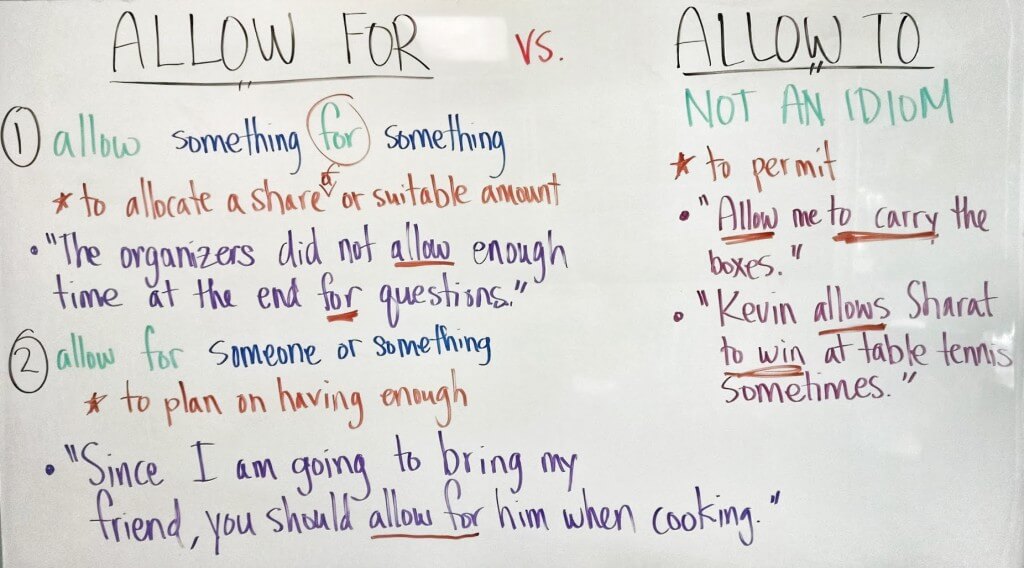 ALLOW FOR vs. ALLOW TO
① allow something for something
* to allocate a share or suitable amount
• "The organizers did not allow enough
time at the end for questions."
② allow for someone or something
* to plan on having enough
• "Since I am going to bring my
friend, you should allow for him when cooking."
NOT AN IDIOM
* to permit
• "Allow me to carry the
boxes."
• "Kevin allows Sharat
to win at table tennis
sometimes."